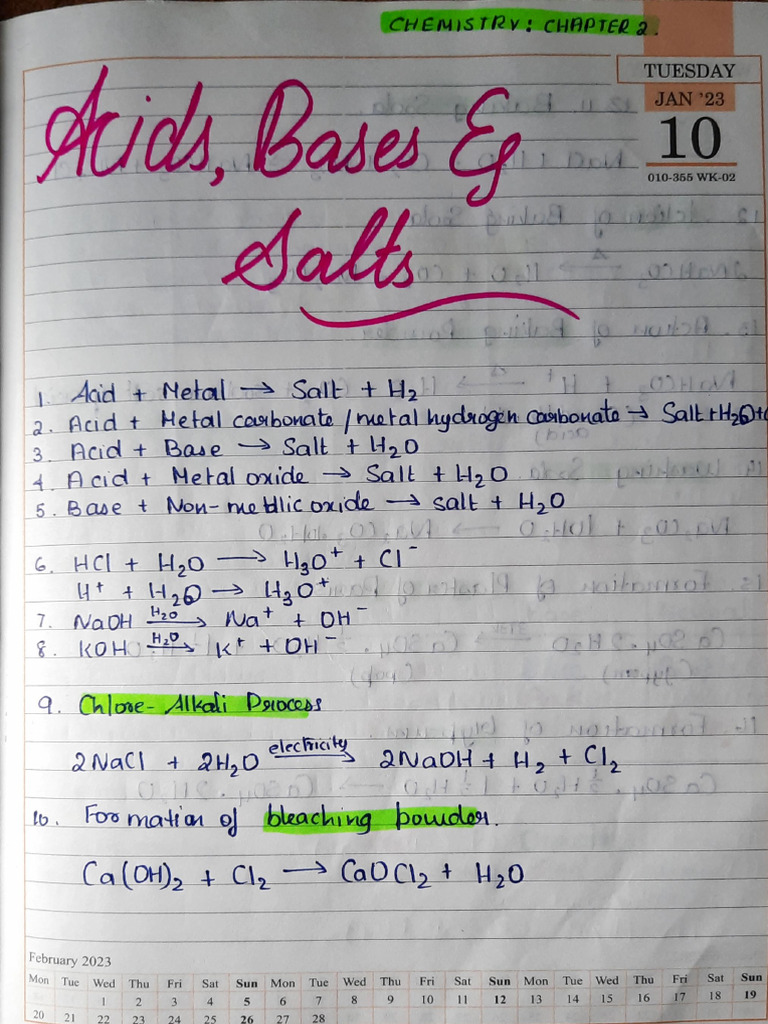 CHEMISTRY: CHAPTER 2.
TUESDAY
JAN '23
10
010-355 WK-02
Acids, Bases &
Salts
1. Acid + Metal → Salt + H₂
2. Acid + Metal carbonate / metal hydrogen carbonate → Salt + H₂O +
3. Acid + Base → Salt + H₂O
4. Acid + Metal oxide → Salt + H₂O
5. Base + Non-metllic oxide → salt + H₂O
6. HCl + H₂O → H₃O⁺ + Cl⁻
H⁺ + H₂O → H₃O⁺
7. NaOH —H₂O→ Na⁺ + OH⁻
8. KOH —H₂O→ K⁺ + OH⁻
9. Chlore-Alkali Process
2NaCl + 2H₂O —electricity→ 2NaOH + H₂ + Cl₂
10. Formation of bleaching powder.
Ca(OH)₂ + Cl₂ → CaOCl₂ + H₂O
February 2023
Mon Tue Wed Thu Fri Sat Sun Mon Tue Wed Thu Fri Sat Sun Mon Tue Wed Thu Fri Sat Sun
1 2 3 4 5 6 7 8 9 10 11 12 13 14 15 16 17 18 19
20 21 22 23 24 25 26 27 28